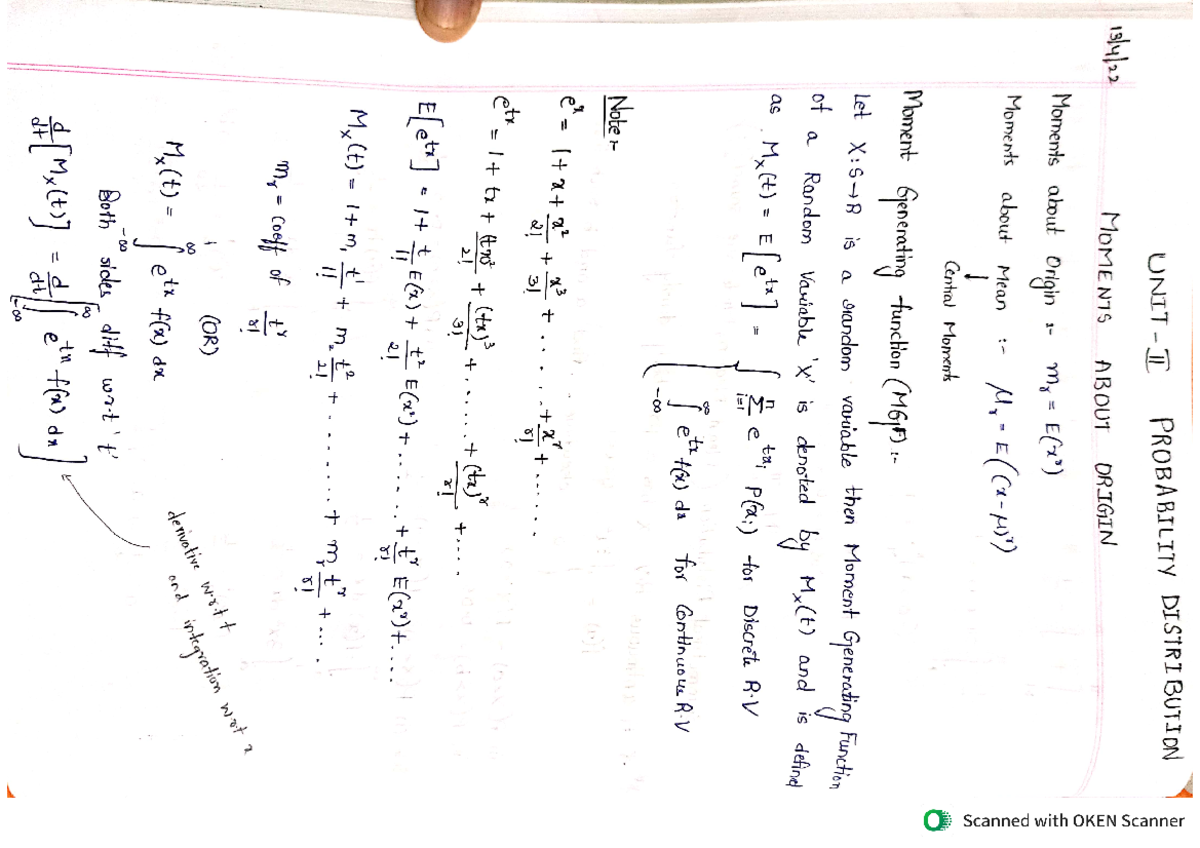 UNIT-II PROBABILITY DISTRIBUTION
13/4/22
MOMENTS ABOUT ORIGIN
Moments about Origin :- mᵣ = E(xʳ)
Moments about Mean :- μᵣ = E((x-μ)ʳ)
↓
Central Moments
Moment Generating function (MGF) :-
Let X:S→R is a random variable then Moment Generating Function
of a Random Variable 'X' is denoted by Mₓ(t) and is defined
as Mₓ(t) = E[e^{tx}] = { Σ_{i=1}^{n} e^{txᵢ} P(xᵢ) for Discrete R.V
∫_{-∞}^{∞} e^{tx} f(x) dx for Continuous R.V
Note :-
eˣ = 1 + x + x²/2! + x³/3! + ...... + xʳ/r! + ......
e^{tx} = 1 + tx + (tx)²/2! + (tx)³/3! + ...... + (tx)ʳ/r! + ....
E[e^{tx}] = 1 + t/1! E(x) + t²/2! E(x²) + ...... + tʳ/r! E(xʳ) + ....
Mₓ(t) = 1 + m₁ t¹/1! + m₂ t²/2! + ........ + mᵣ tʳ/r! + ....
mᵣ = Coeff of tʳ/r!
(OR)
Mₓ(t) = ∫_{-∞}^{∞} e^{tx} f(x) dx
Both sides diff w.r.t 't'
d/dt [Mₓ(t)] = d/dt [∫_{-∞}^{∞} e^{tx} f(x) dx]
derivative w.r.t t
and integration w.r.t x
Scanned with OKEN Scanner